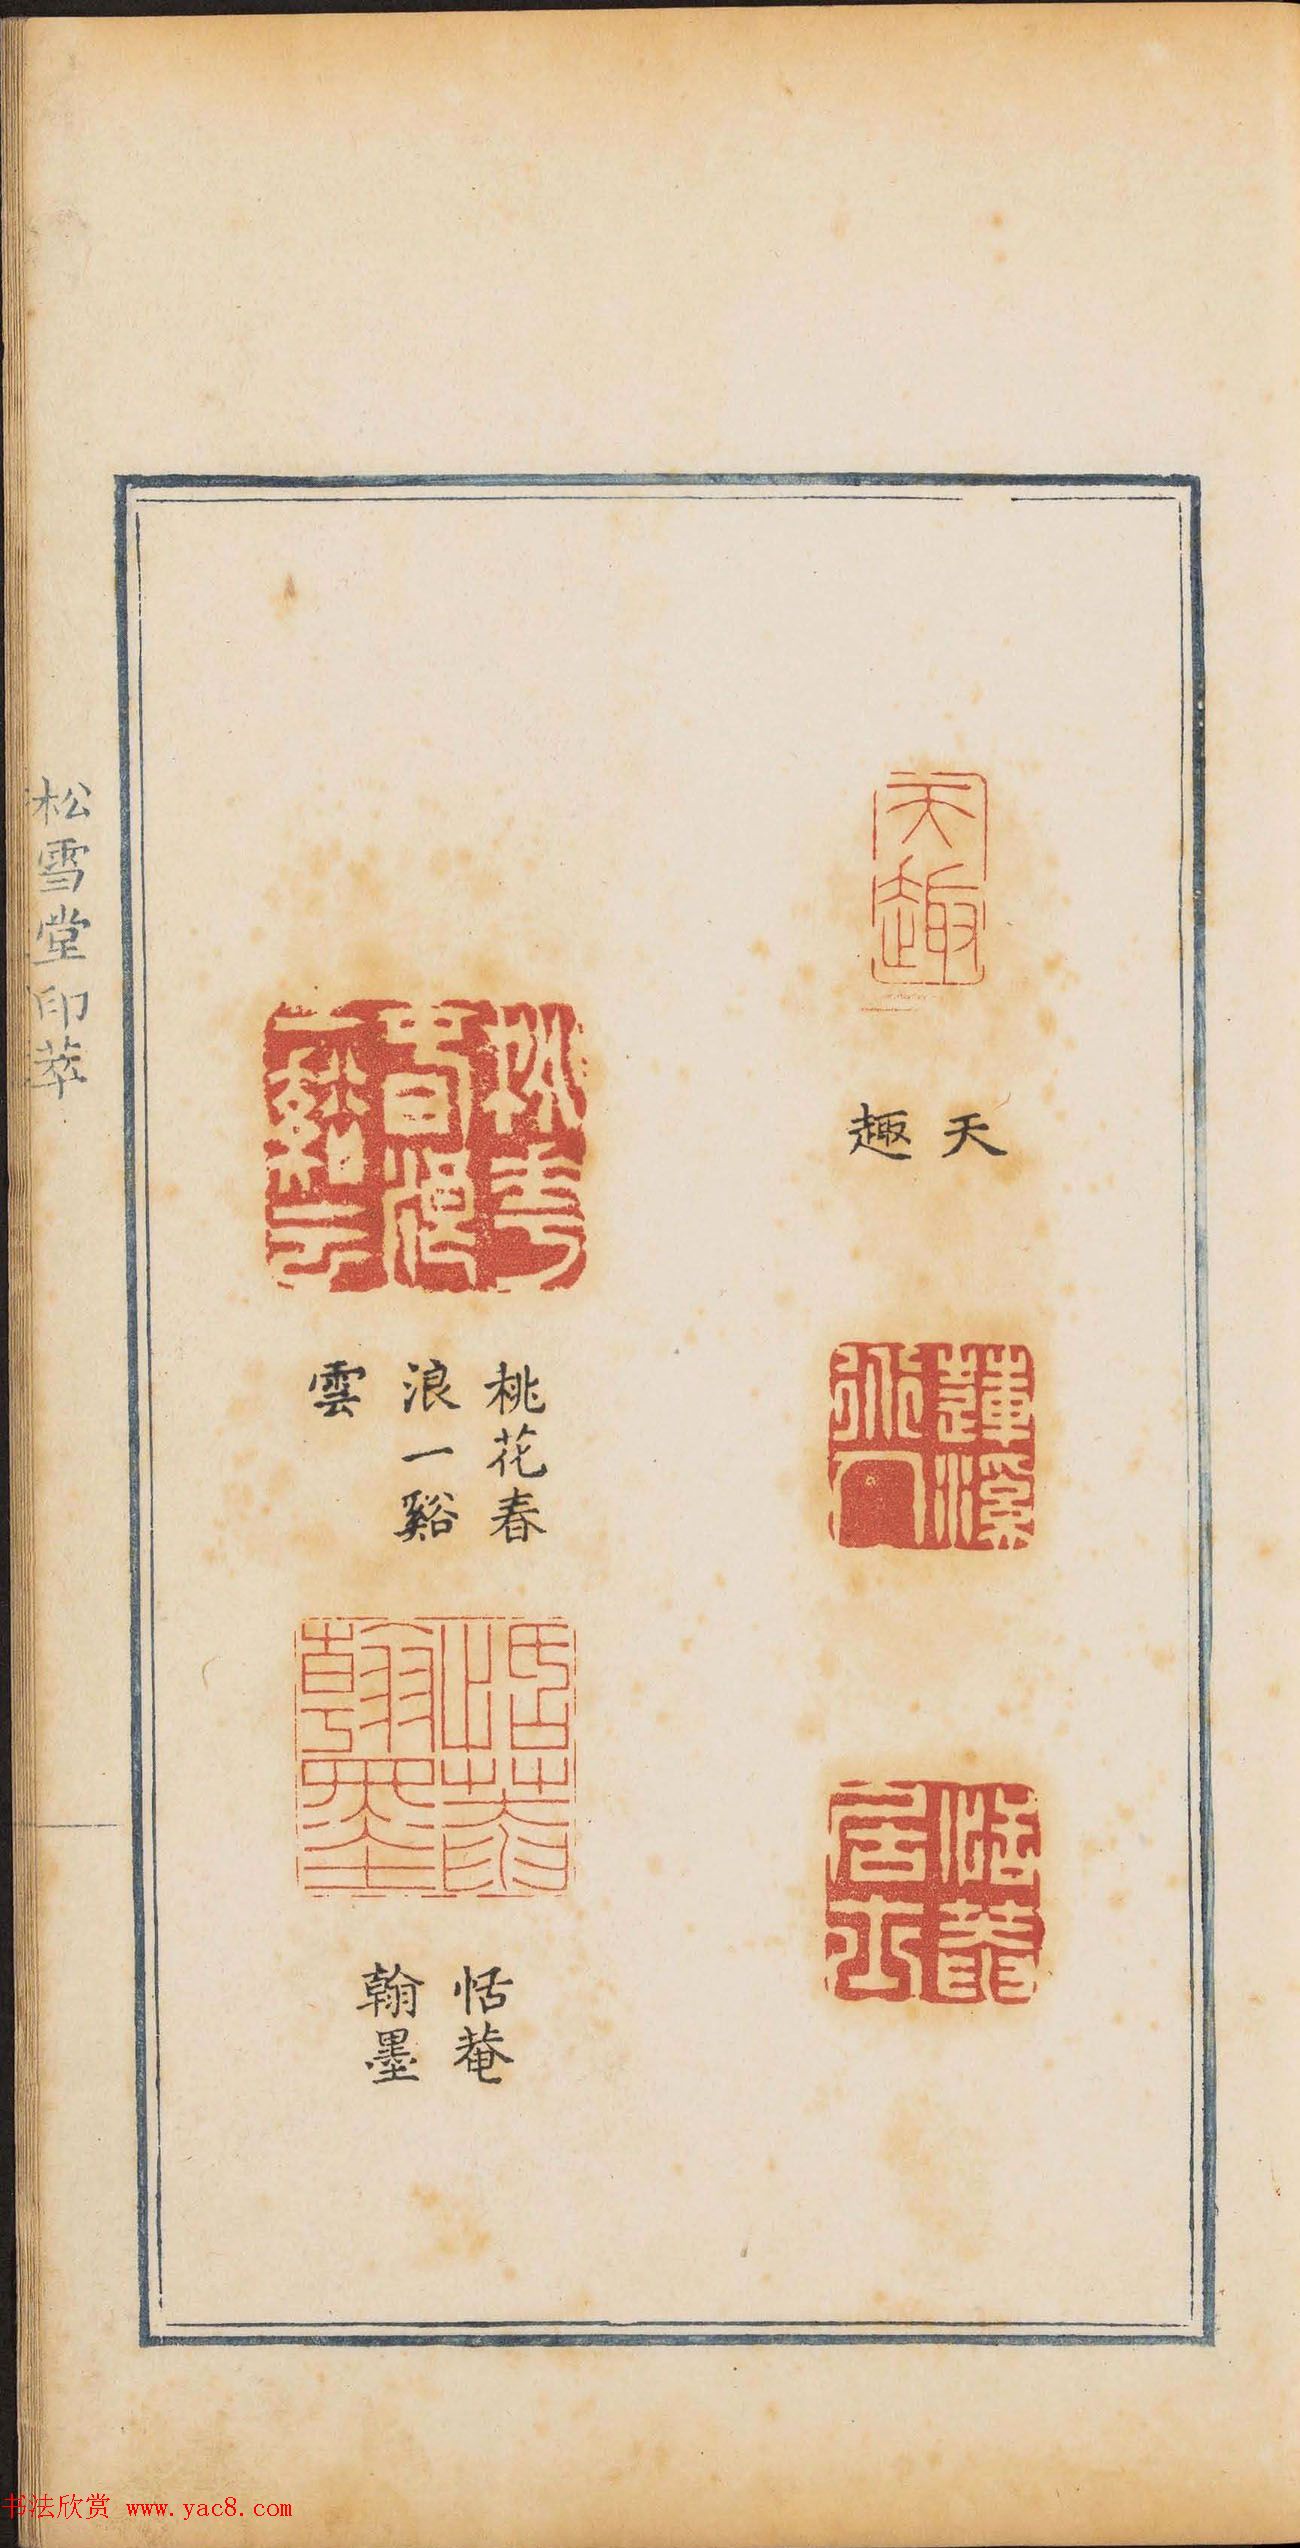 天趣
天
趣
蓮溪
恬菴
居士
桃花
春浪
一谿云
桃花春
浪一谿
雲
恬菴
翰墨
恬菴
翰墨
松雪堂印萃
书法欣赏 www.yac8.com